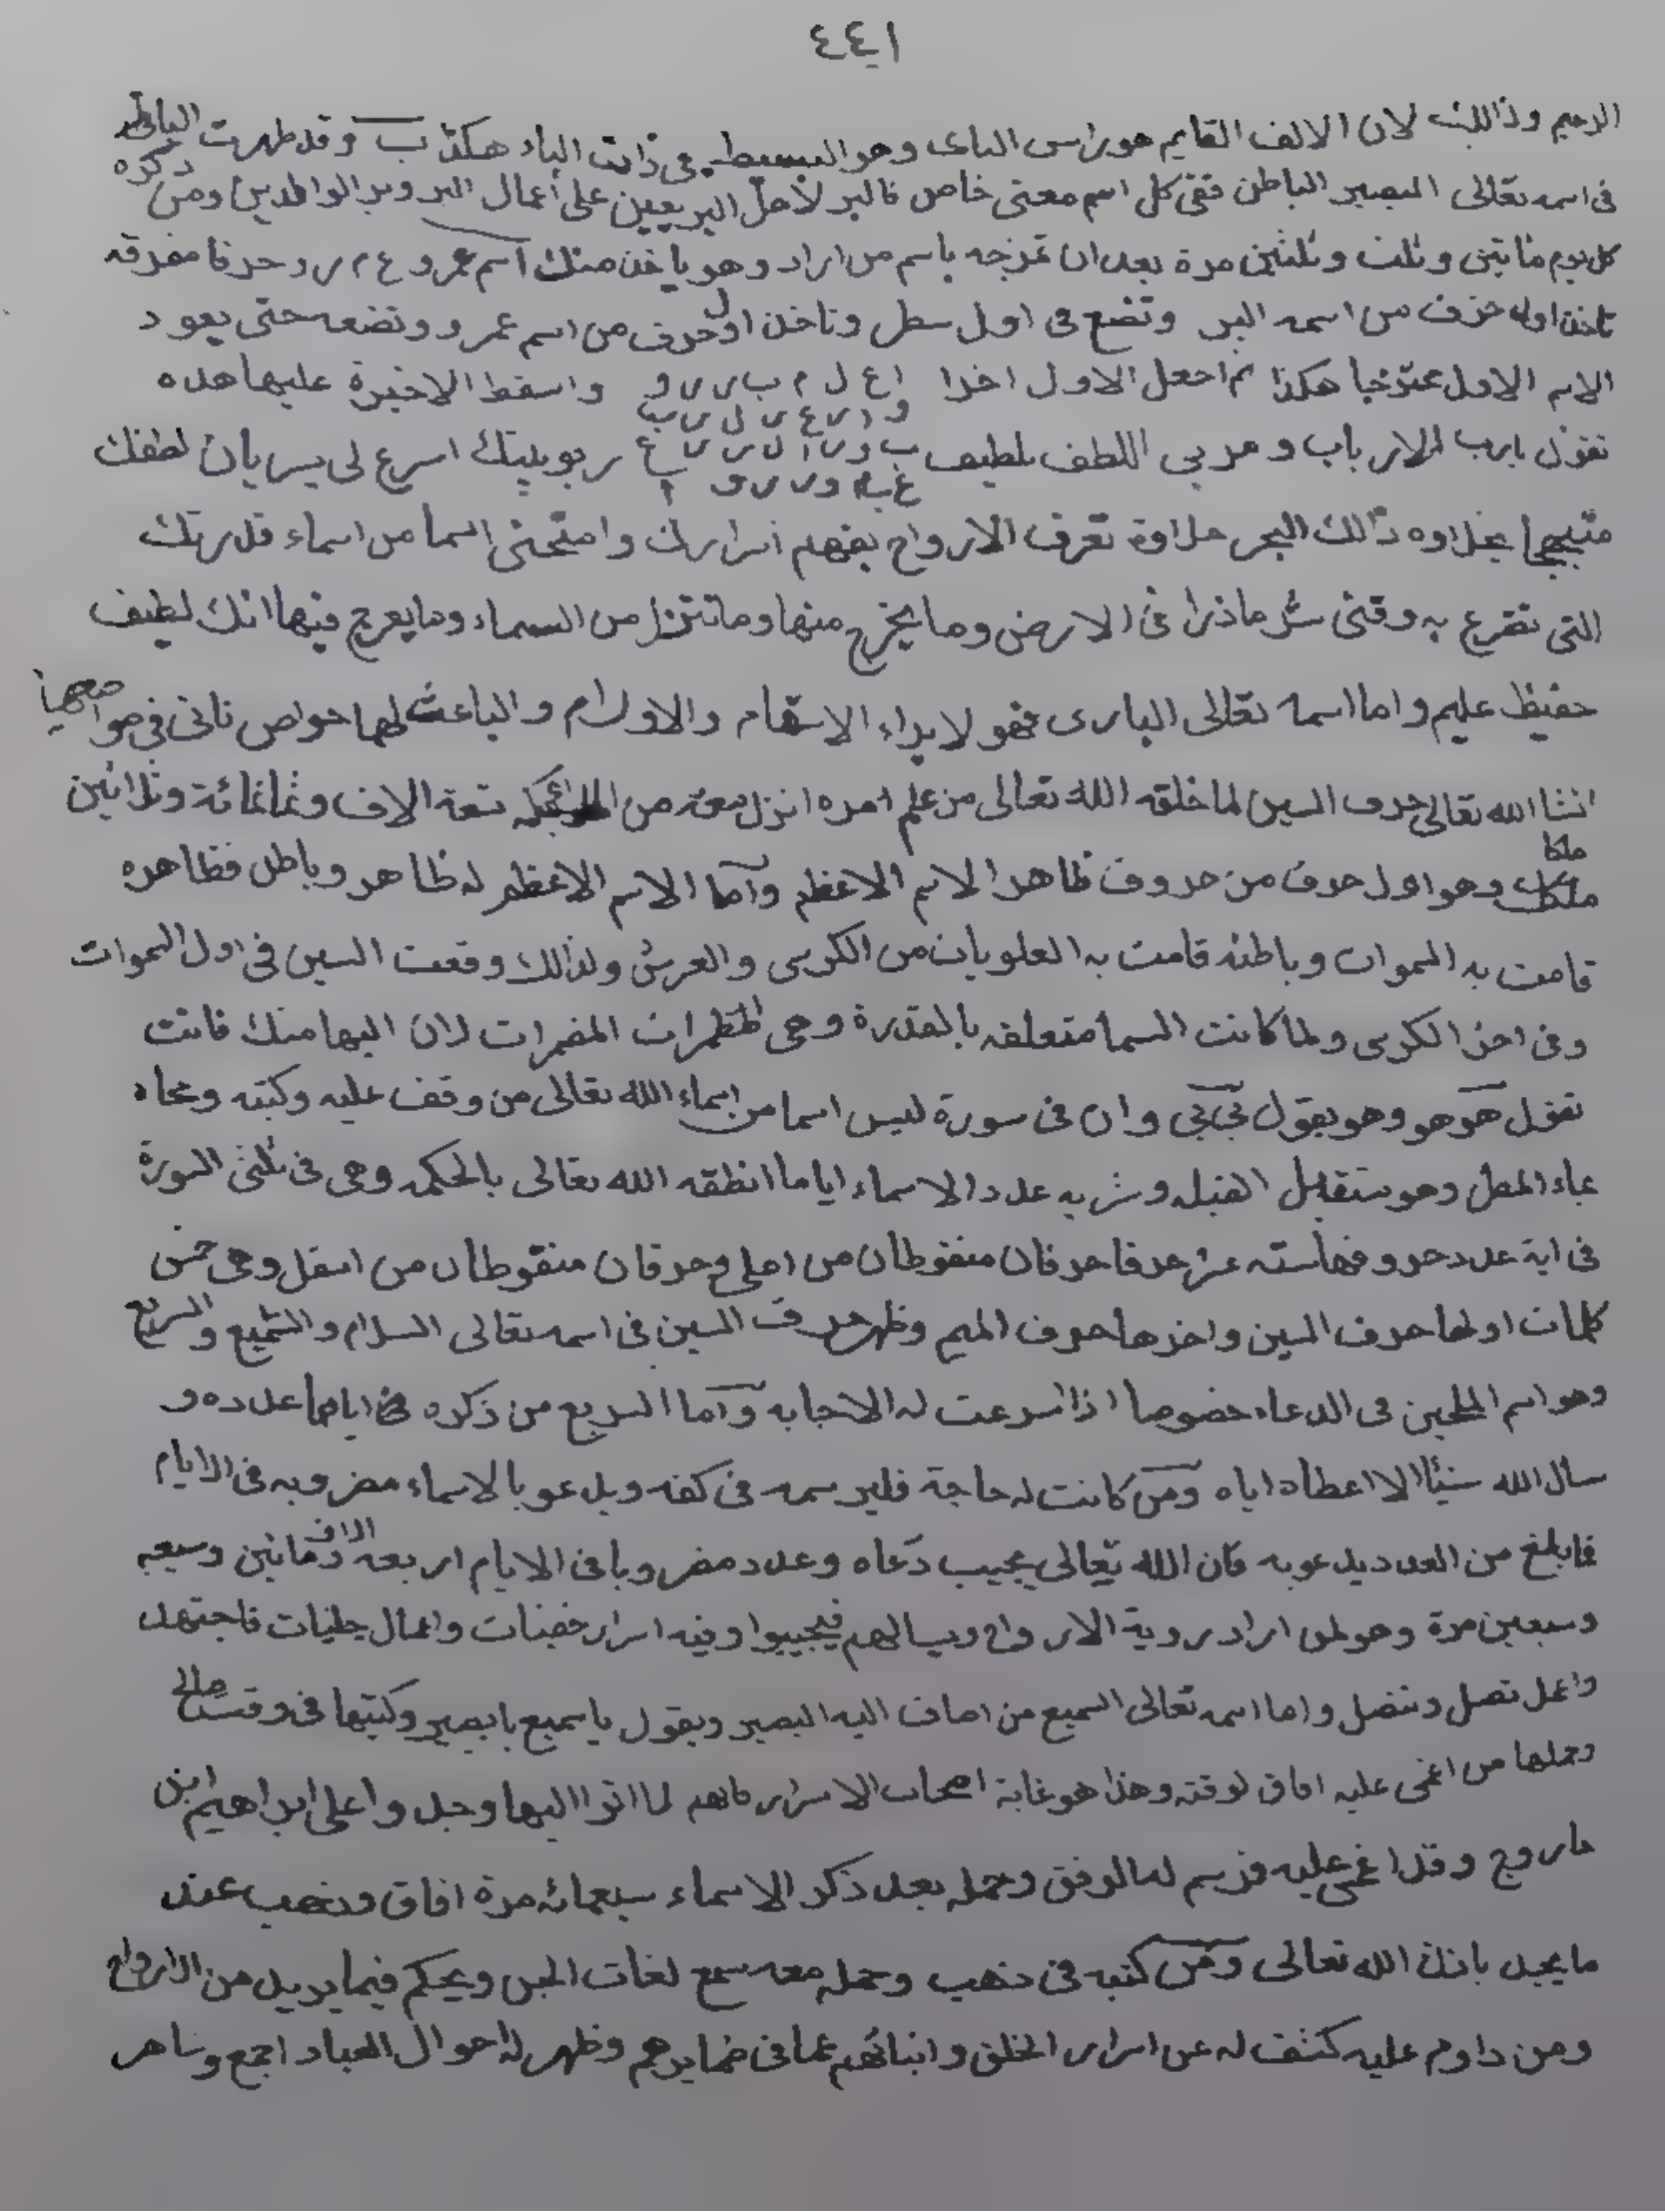 ٤٤١
الرحيم وذالك لان الالف القايم هو راس الباى وهو البسيط فى ذات الباء هكذا ب وقد ظهرت الباطن
فى اسمه تعالى البصير الباطن ففى كل اسم معنى خاص فالبر لاجل البر يعين على أعمال البر وبر الوالدين ومن ذكره
كل يوم مايتين وثلث وثلثين مرة بعد ان تمزجه باسم من اراد وهو ياخذ منك اسم عمرو ع م ر و حرفا مفرقه
تاخذ اول حرف من اسمه البر وتضع فى اول سطر وتاخذ اول حرف من اسم عمرو وتضعه حتى يعود
الاسم الاول ممتزجا هكذا ثم اجعل الاول اخرا ا ع ل م ب ر ر و واسقط الاخيرة عليها هده
تقول يارب الارباب ومربى اللطف بلطيف ربوبيتك اسرع لى بسريان لطفك
مبتهجا بحلاوه ذالك البحر حلاوة تعرف الارواح بفهم اسرارك وامنحنى اسما من اسماء قدرتك
التى تقرع به وقنى شر ما ذرا فى الارض وما يخرج منها وما تنزل من السماء وما يعرج فيها انك لطيف
حفيظ عليم واما اسمه تعالى البارى فهو لابراء الاسقام والاورام والباعث لهما خواص تاتى فى مواضعها
انشا الله تعالى حرف السين لما خلقه الله تعالى من علم امره انزل معه من الملائكه تسعة الاف وثمانمائة وثلاثين
ملكا
وهو اول حرف من حروف ظاهر الاسم الاعظم وآما الاسم الاعظم له ظاهر وباطن فظاهره
قامت به السموات وباطنه قامت به العلويات من الكرسى والعرش ولذالك وقعت السين فى اول السموات
وفى اخر الكرسى ولما كانت السما متعلقه بالقدرة وهى المظهرات المضمرات لان اليها منك فانت
تقول هو هو وهو يقول وان فى سورة ليس اسما من اسماء الله تعالى من وقف عليه وكتبه ومحاه
بماء المطر وهو مستقبل القبله وشربه عدد الاسماء اياما انطقه الله تعالى بالحكمه وهى فى ثلثى السورة
فى اية عدد حروفها سته عشر حرفا حرفان منقوطان من اعلى وحرفان منقوطان من اسفل وهى خمس
كلمات اولها حرف السين واخرها حرف الميم وظهر حرف السين فى اسمه تعالى السلام والسميع والسريع
وهو اسم الملحين فى الدعاء خصوصا اذا اسرعت له الاجابه وآما السريع من ذكره فى اياما عدده و
سال الله شيئا الا اعطاه اياه ومن كانت له حاجة فليرسمه فى كفه ويدعو بالاسماء مضروبه فى الايام
فابلغ من العدد يدعو به فان الله تعالى يجيب دعاه وعدد مضروبا فى الايام اربعة الاف ومايتين وسبعه
وسبعين مرة وهو لمن اراد روية الارواح ويسالهم فيجيبوا وفيه اسرار خفيات واعمال جليات فاجتهد
واعمل تصل وتتصل واما اسمه تعالى السميع من اضاف اليه البصير ويقول يا سميع يا بصير وكتبها فى وقت صالح
وحملها من اغمى عليه افاق لوقته وهذا هو غاية اصحاب الاسرار فانهم لما اتوا اليها وجدوا على ابراهيم ابن
ماروج وقد اغمى عليه فرسم له الوفق وحمله بعد ذكر الاسماء سبعمائه مرة افاق وذهب عنه
ما يجد باذن الله تعالى ومن كتبه فى ذهب وحمله معه سمع لغات الجن ويحكم فيما يريد من الارواح
ومن داوم عليه كشف له عن اسرار الخلق وانبائهم عما فى ضمايرهم وظهر له احوال العباد اجمع وشاهر